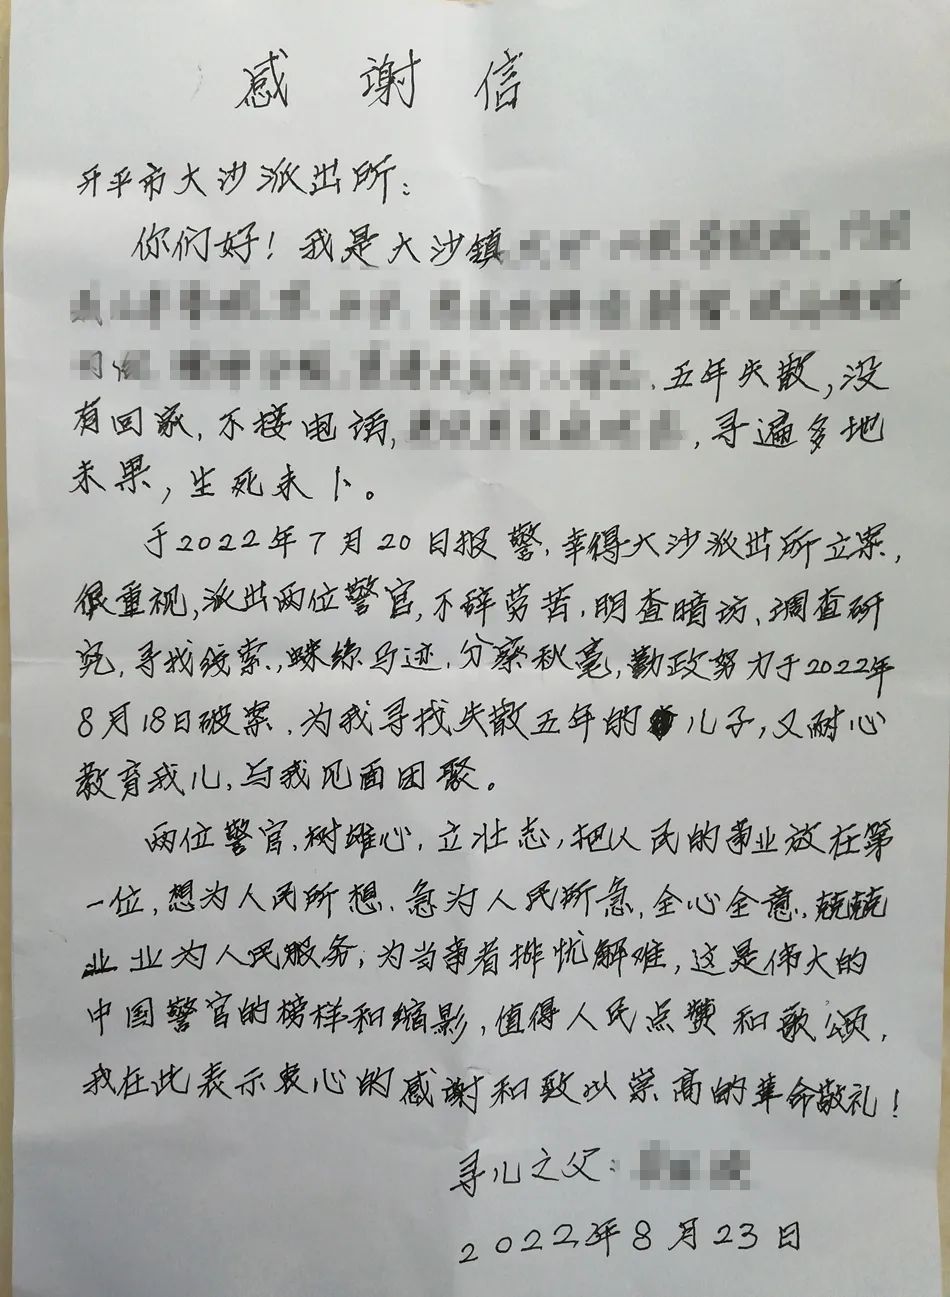 感谢信
开平市大沙派出所:
你们好!我是大沙镇
五年失散,没
有回家,不接电话,寻遍多地
未果,生死未卜。
于2022年7月20日报警,幸得大沙派出所立案,
很重视,派出两位警官,不辞劳苦,明查暗访、调查研
究,寻找线索,蛛丝马迹,分察秋毫,勤政努力于2022年
8月18日破案,为我寻找失散五年的儿子,又耐心
教育我儿,与我见面团聚。
两位警官,树雄心,立壮志,把人民的事业放在第
一位,想为人民所想、急为人民所急,全心全意,兢兢
业业为人民服务,为当事者排忧解难,这是伟大的
中国警官的榜样和缩影,值得人民点赞和歌颂,
我在此表示衷心的感谢和致以崇高的革命敬礼!
寻儿之父:
2022年8月23日